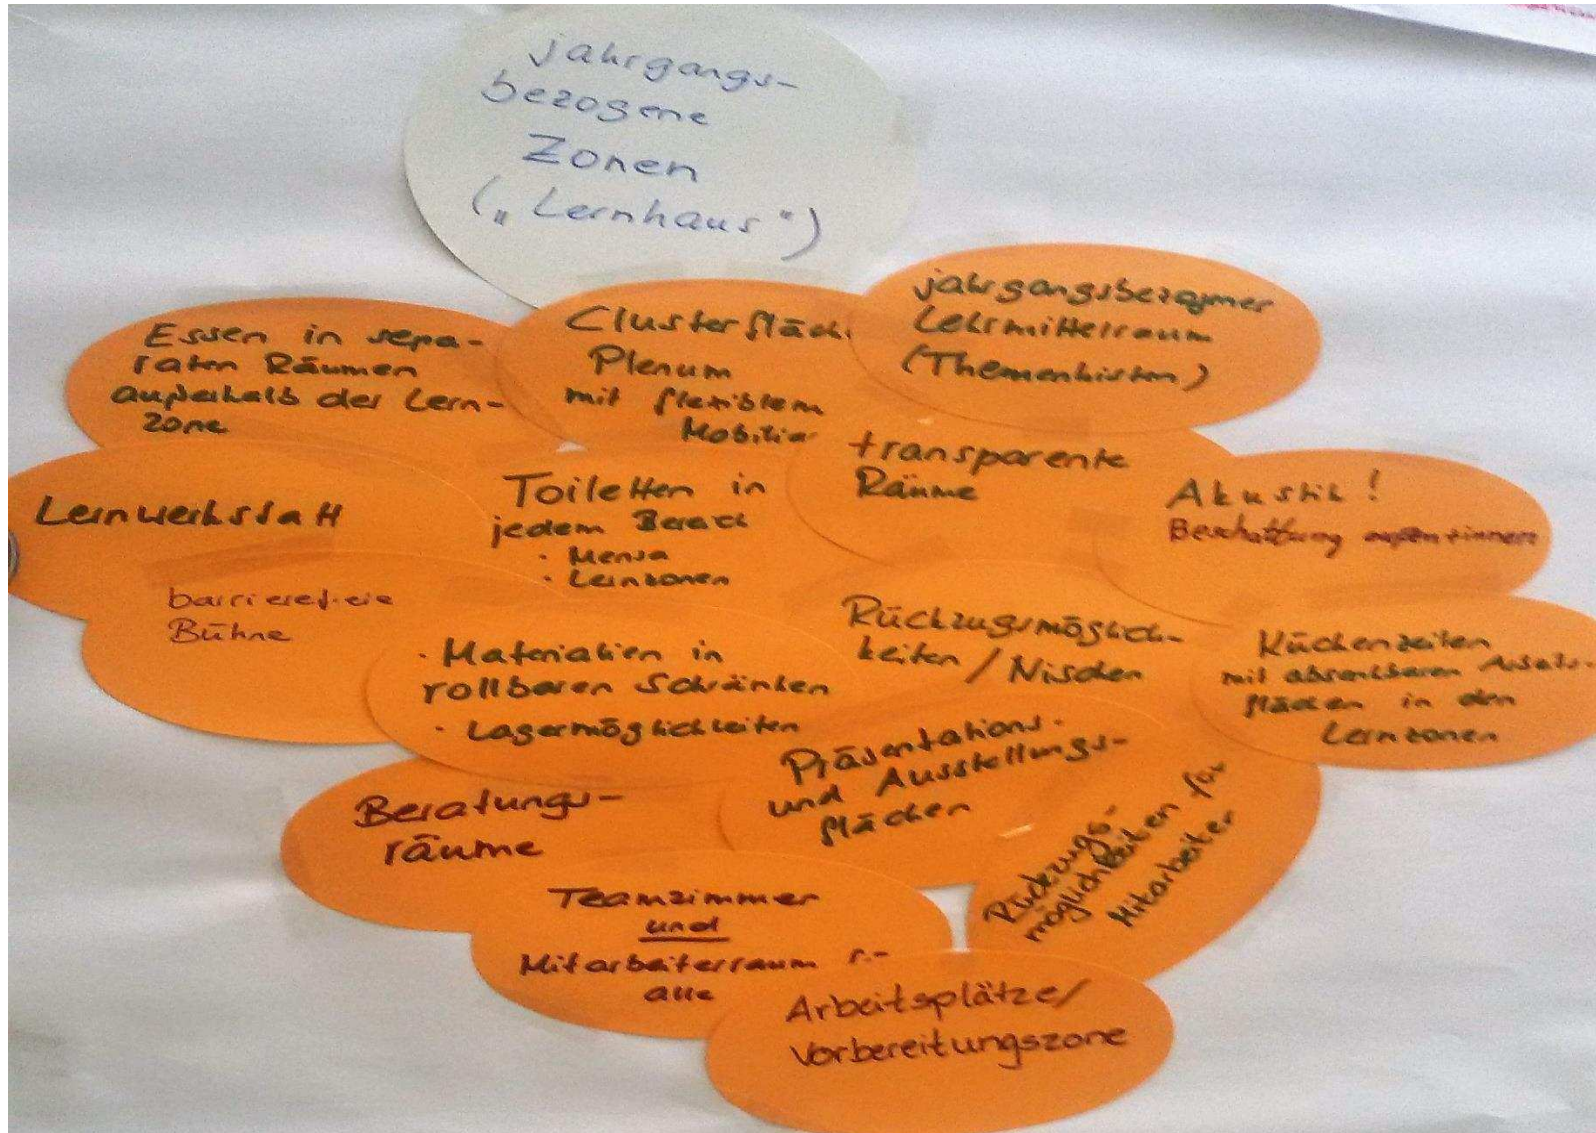 jahrgangs-
bezogene
Zonen
(„Lernhaus")
Essen in sepa-
raten Räumen
außerhalb der Lern-
zone
Clusterfläch
Plenum
mit flexiblem
Mobilia
jahrgangsbezogener
Lehrmittelraum
(Themenkisten)
Lernwerkstatt
Toiletten in
jedem Bereich
· Mensa
· Lernzonen
transparente
Räume
Akustik!
Beschattung außen+innen
barrierefreie
Bühne
· Materialien in
rollbaren Schränken
· Lagermöglichkeiten
Rückzugsmöglich-
keiten / Nischen
Küchenzeilen
mit absenkbaren Arbeits-
flächen in den
Lernzonen
Beratungs-
räume
Präsentations-
und Ausstellungs-
flächen
Rückzugs-
möglichkeiten für
Mitarbeiter
Teamzimmer
und
Mitarbeiterraum
alle
Arbeitsplätze/
Vorbereitungszone